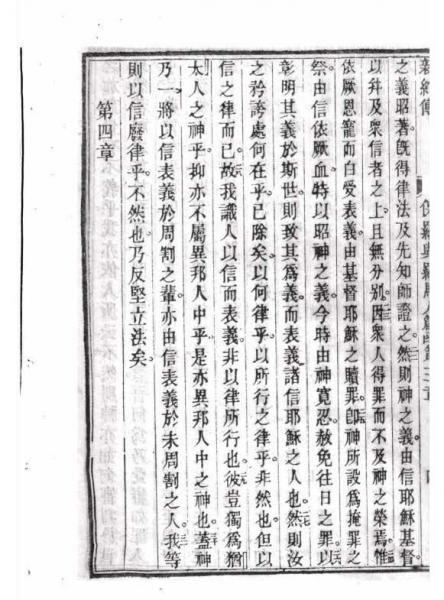 之義昭著。旣得律法及先知師證之。然則神之義。由信耶穌基督。
以幷及衆信者之上。且無分別。因衆人得罪而不及神之榮焉。惟
依厥恩寵而白受表義。由基督耶穌之贖罪。卽神所設爲掩罪之
祭。由信依厥血。時以昭神之義。今時由神寬忍。赦免往日之罪。以
彰明其義於斯世。則致其爲義。而表義諸信耶穌之人也。然則汝
之矜誇處何在乎。已除矣。以何律乎。以所行之律乎。非然也。但以
信之律而已。故我識人以信而表義。非以律所行也。彼豈獨爲猶
太人之神乎。抑亦不屬異邦人中乎。是亦異邦人中之神也。蓋神
乃一。將以信表義於周割之輩。亦由信表義於未周割之人。我等
則以信廢律乎。不然也。乃反堅立法矣。
第四章